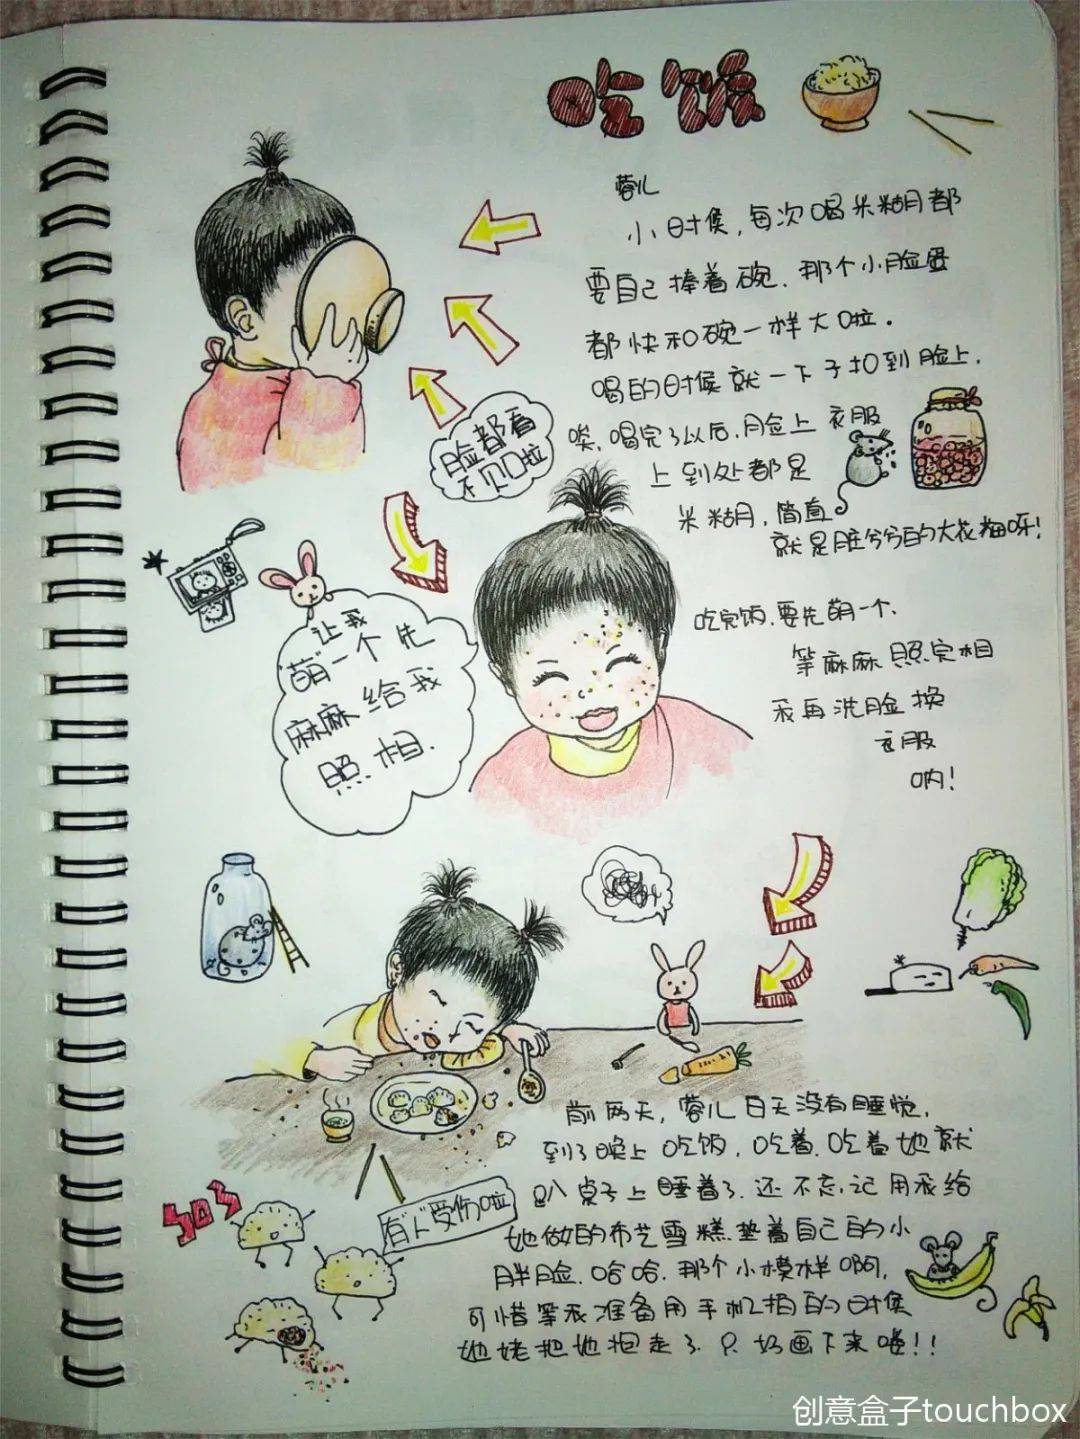 吃饭
蓉儿
小时候,每次喝米糊都
要自己捧着碗.那个小脸蛋
都快和碗一样大啦。
喝的时候就一下子扣到脸上.
唉.喝完了以后.脸上衣服
上到处都是
米糊.简直
就是脏兮兮的大花猫呀!
脸都看
不见啦
让我
"萌"一个先
麻麻给我
照相.
吃完饭.要先萌一个.
等麻麻照完相
我再洗脸换
衣服
呐!
前两天,蓉儿白天没有睡觉.
到了晚上吃饭.吃着.吃着她就
趴桌子上睡着了.还不忘记用我给
她做的布艺雪糕垫着自己的小
胖脸.哈哈.那个小模样啊.
可惜等我准备用手机拍的时候
她姥把她抱走了.只好画下来喽!!
SOS
有人受伤啦
创意盒子touchbox